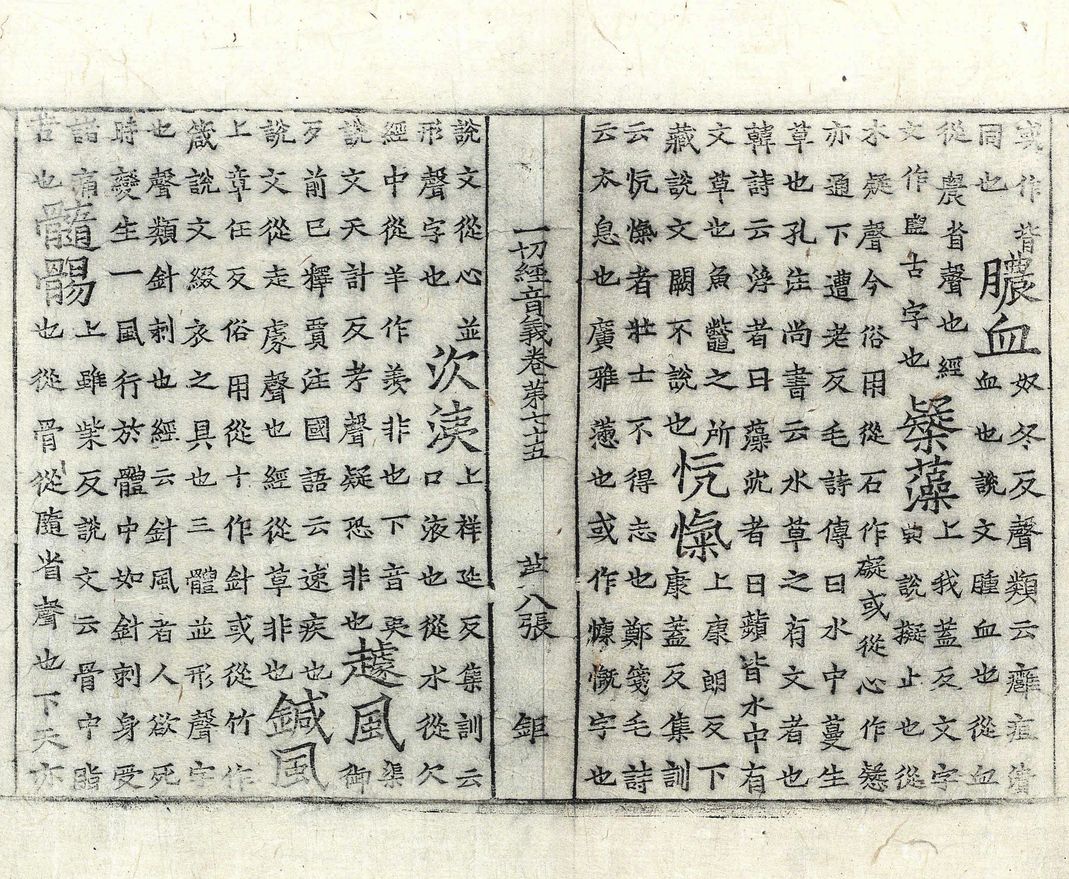 或作揩
同也
膿血
奴冬反聲類云癰疽潰
血也說文腫血也從血
從農省聲也經
文作盥古字也
礙藻
上我蓋反文字
典說擬止也從
水疑聲今俗用從石作礙或從心作懝
亦通下遭老反毛詩傳曰水中蔓生
草也孔注尚書云水草之有文者也
韓詩云浮者曰藻沈者曰蘋皆水中有
文草也魚鼈之所
藏說文闕不說也
忼愾
上康朗反下
康蓋反集訓
云忼愾者壯士不得志也鄭箋毛詩
云太息也廣雅懣也或作慷慨字也
一切經音義卷第六十五 八張 鉅
說文從心並
形聲字也
次涎
上祥延反集訓云
口液也從水從欠
經中從羊作羨非也下音夷
說文天計反考聲疑恐非也
遽風
渠
御
反前已釋賈注國語云速疾也
說文從走豦聲也經從草非也
鍼風
上章任反俗用從十作針或從竹作
箴說文綴衣之具也三體並形聲字
也聲類針刺也經云針風者人欲死
時變生一風行於體中如針刺身受
諸痛
苦也
髓𩩲
上雖紫反說文云骨中脂
也從骨從隨省聲也下天亦